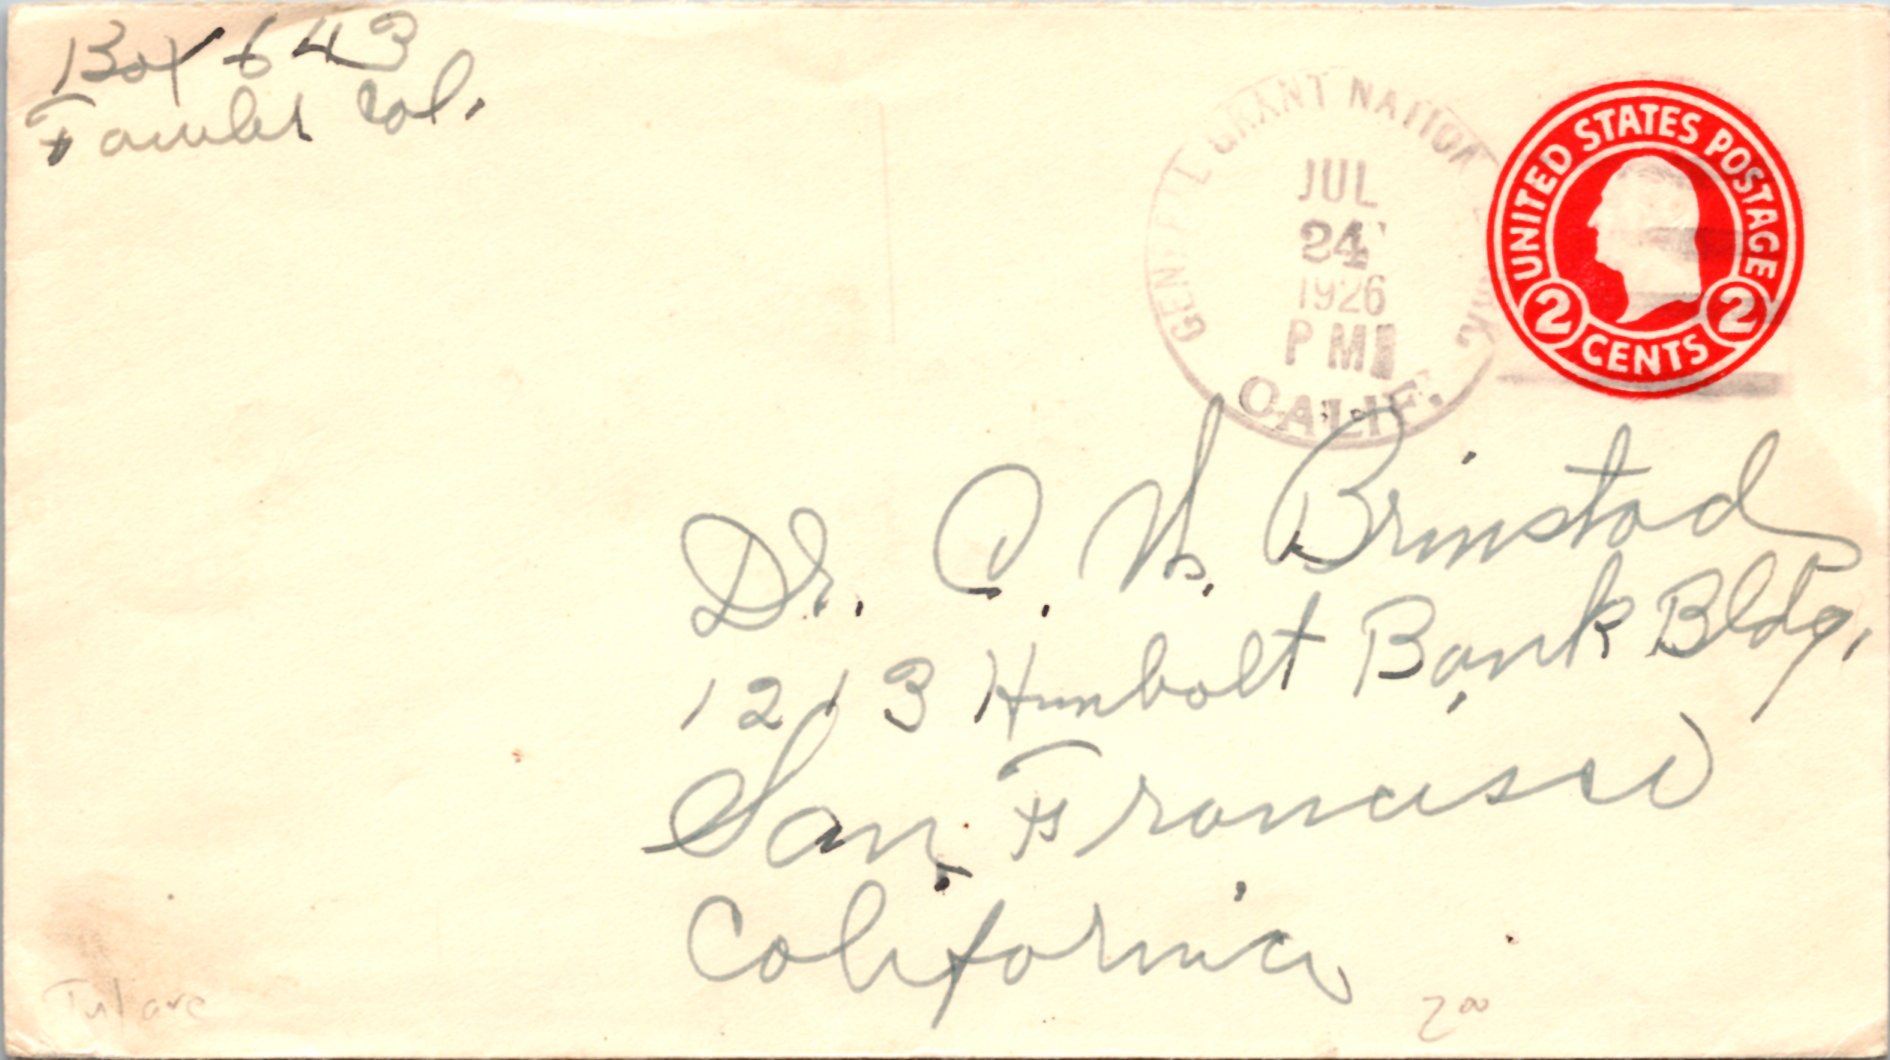 Box 643
Fowler Cal.
GENERAL GRANT NATIONAL PARK.
JUL
24
1926
PM
CALIF.
UNITED STATES POSTAGE
2 CENTS 2
Dr. C. W. Brinstad
1213 Humbolt Bank Bldg.
San Francisco
California
Tulare
2⁰⁰